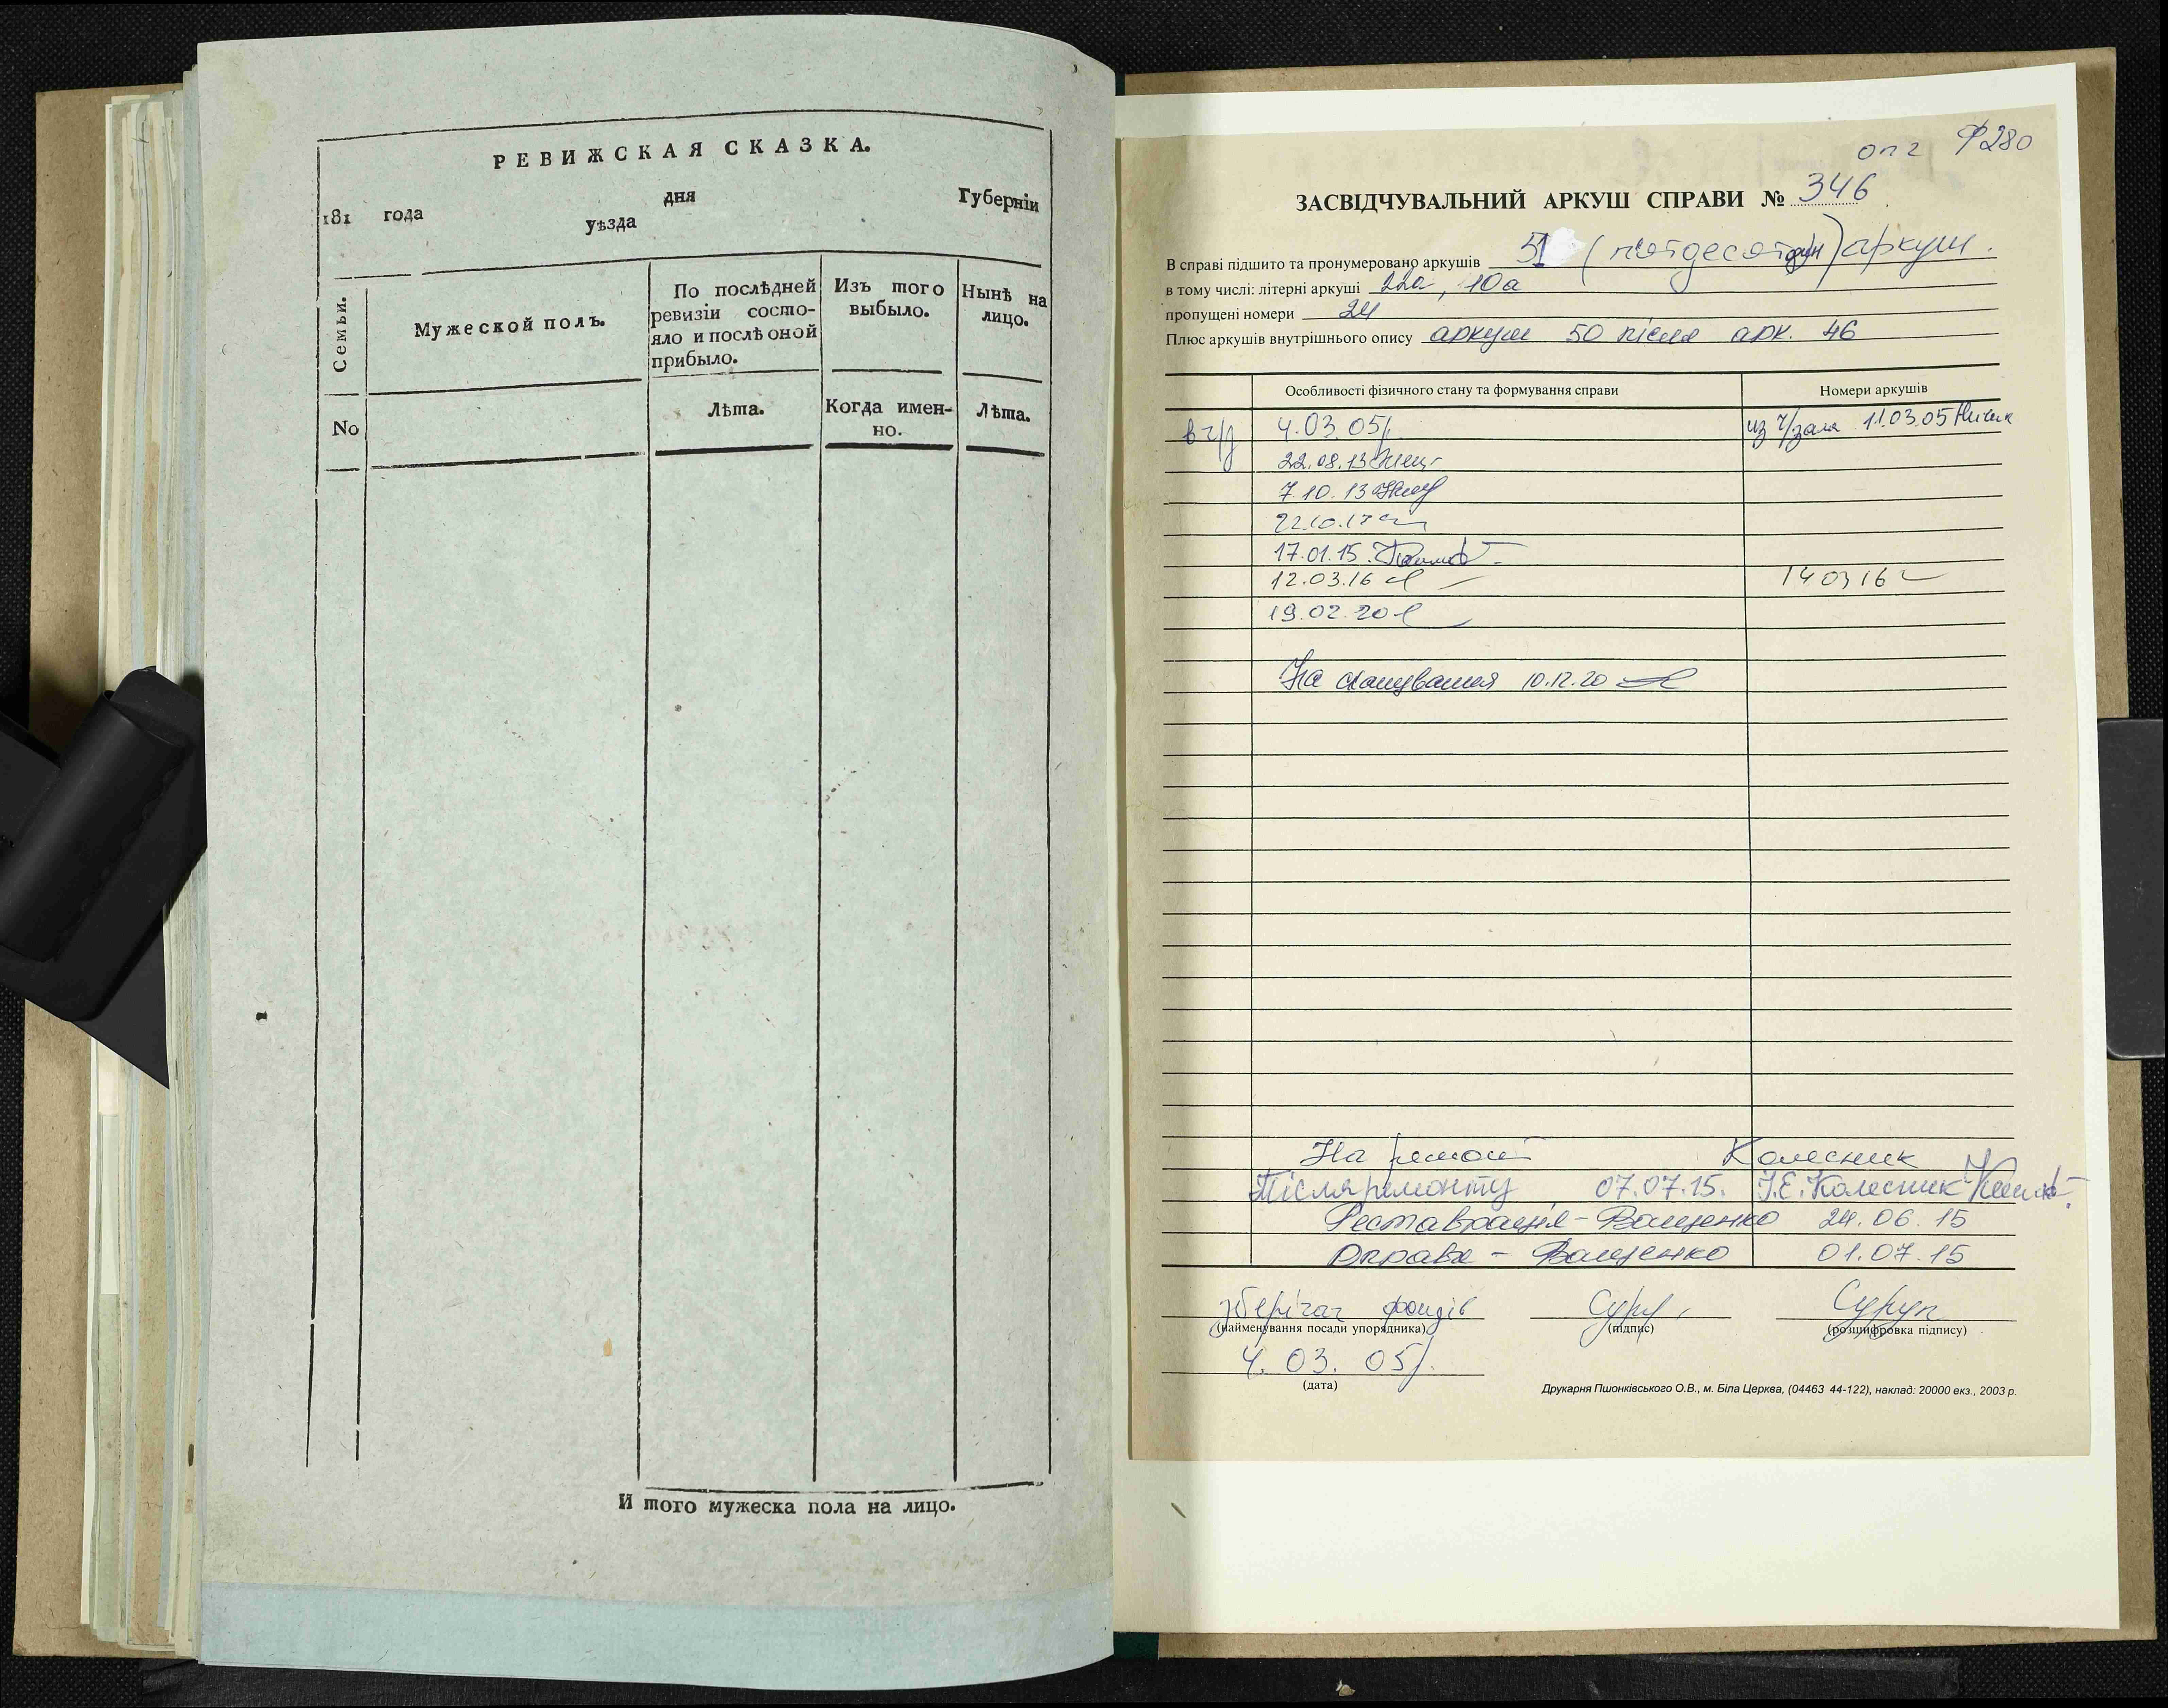 РЕВИЖСКАЯ СКАЗКА.
181 года дня Губернїи
уѣзда
Семьи.
Мужеской полъ.
По послѣдней ревизіи состо-
яло и послѣ оной
прибыло.
Изъ того
выбыло.
Нынѣ на
лицо.
No
Лѣта.
Когда имен-
но.
Лѣта.
И того мужеска пола на лицо.
оп 2 Ф 280
ЗАСВІДЧУВАЛЬНИЙ АРКУШ СПРАВИ № 346
В справі підшито та пронумеровано аркушів 51 (п'ятдесят один) аркуш.
в тому числі: літерні аркуші 22а, 10а
пропущені номери 24
Плюс аркушів внутрішнього опису аркуш 50 після арк. 46
Особливості фізичного стану та формування справи
Номери аркушів
в ч/з 4.03.05р. из ч/зала 11.03.05
22.08.13
7.10.13
22.10.17
17.01.15
12.03.16 140316
19.02.20
На сканування 10.12.20
На ремонт Колесник
Після ремонту 07.07.15. І.Є. Колесник
Реставрація – Ващенко 24.06.15
Оправа – Ващенко 01.07.15
зберігач фондів Суруп
(найменування посади упорядника)
(підпис)
(розшифровка підпису)
4.03.05р.
(дата)
Друкарня Пшонківського О.В., м. Біла Церква, (04463 44-122), наклад: 20000 екз., 2003 р.